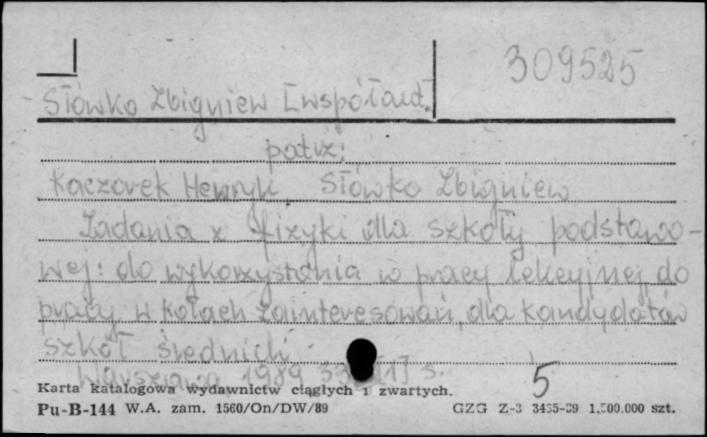 309525
Słówko Zbigniew [współaut.]
patrz:
Kaczorek Henryk, Słówko Zbigniew
Zadania z fizyki dla szkoły podstawo-
wej: do wykorzystania w pracy lekcyjnej, do
pracy w kołach zainteresowań, dla kandydatów
szkół średnich
Warszawa 1989 s.
5
Karta katalogowa wydawnictw ciągłych i zwartych.
Pu-B-144 W.A. zam. 1560/On/DW/89
GZG Z-3 3435-89 1.500.000 szt.